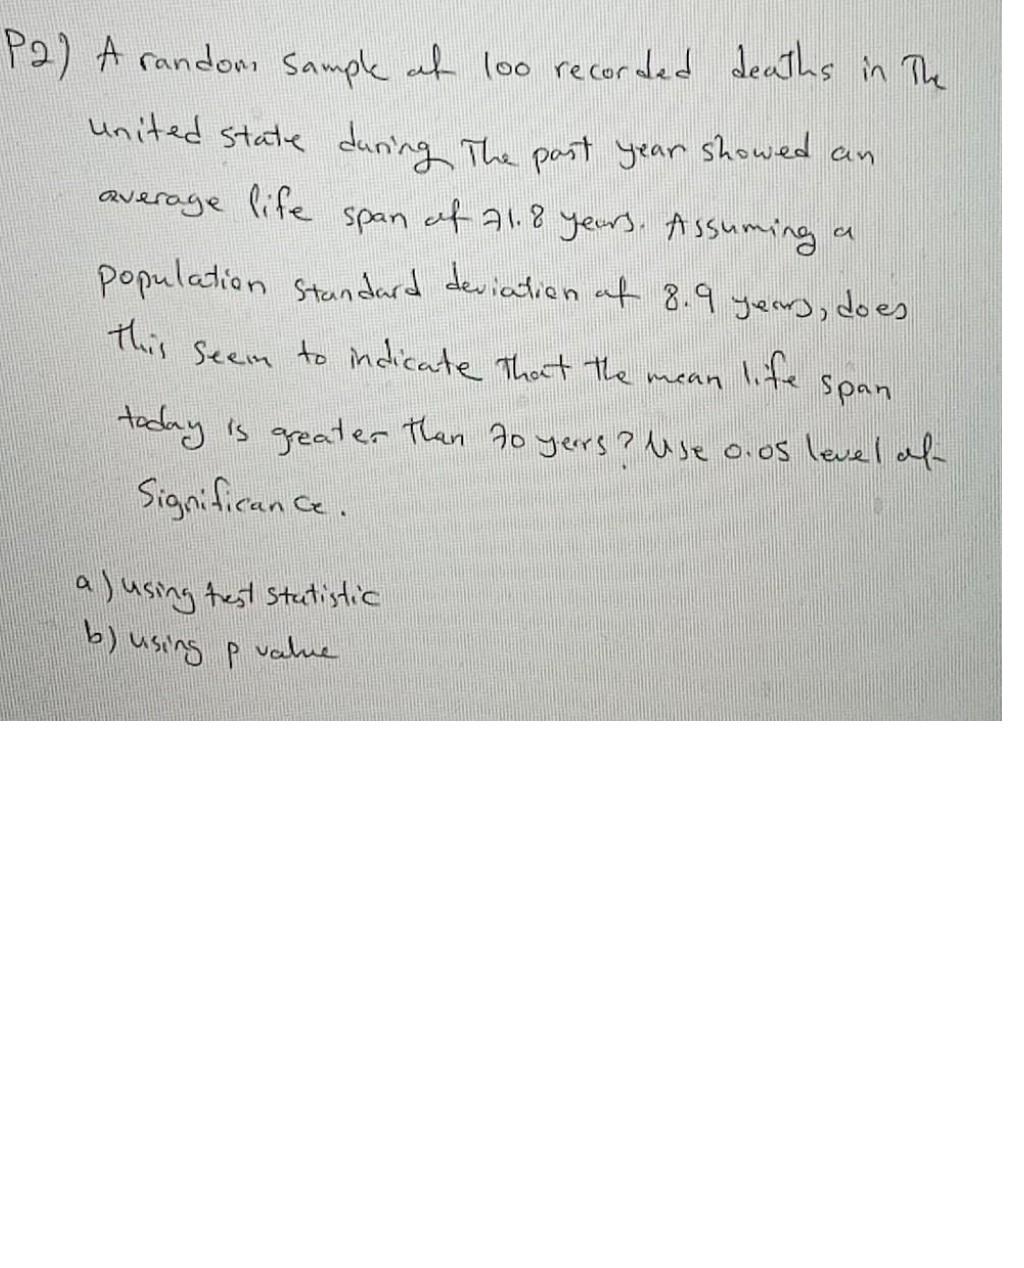 P2) A random sample of 100 recorded deaths in The
united state during The past year showed an
average life span of 71.8 years. Assuming a
population standard deviation of 8.9 years, does
this seem to indicate That the mean life span
today is greater than 70 yers? Use 0.05 level of
Significance.
a) using test statistic
b) using p value